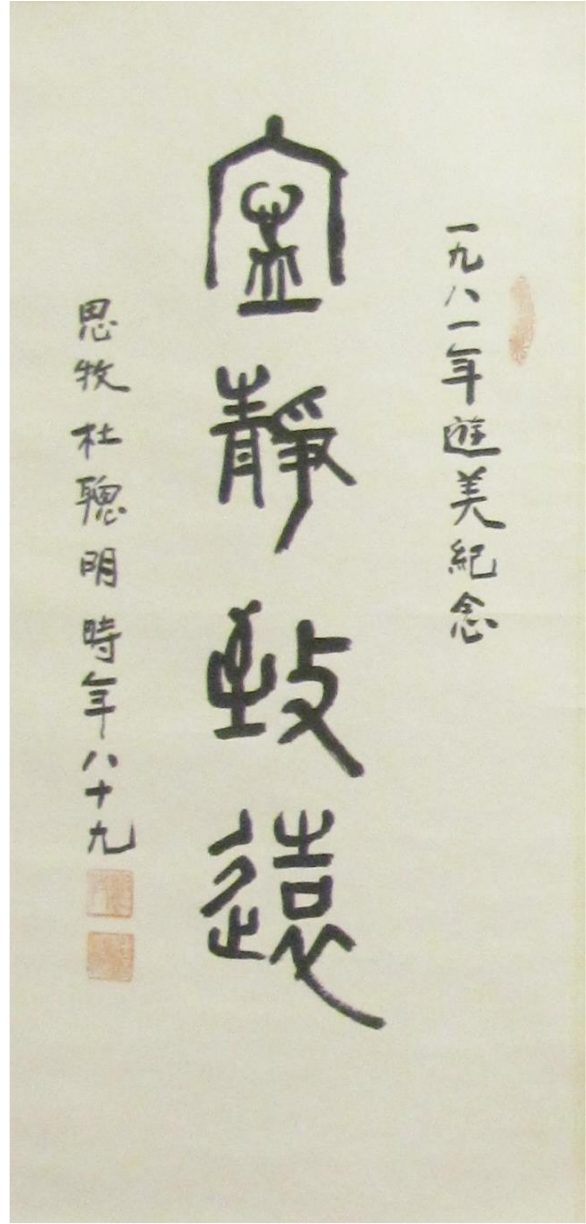 一九八一年遊美紀念
寧靜致遠
思牧杜聰明時年八十九